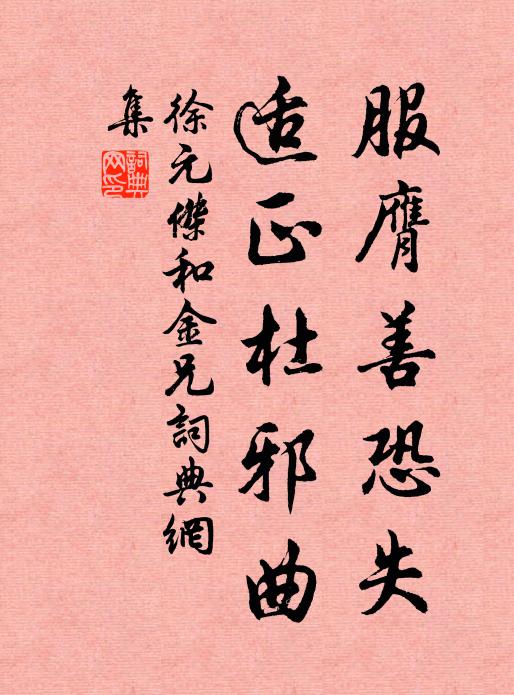 服膺善恐失
适正杜邪曲
徐元傑和金兄詞典網
集
詞典網印